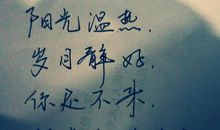 阳光温热，
岁月静好，
你还不来，